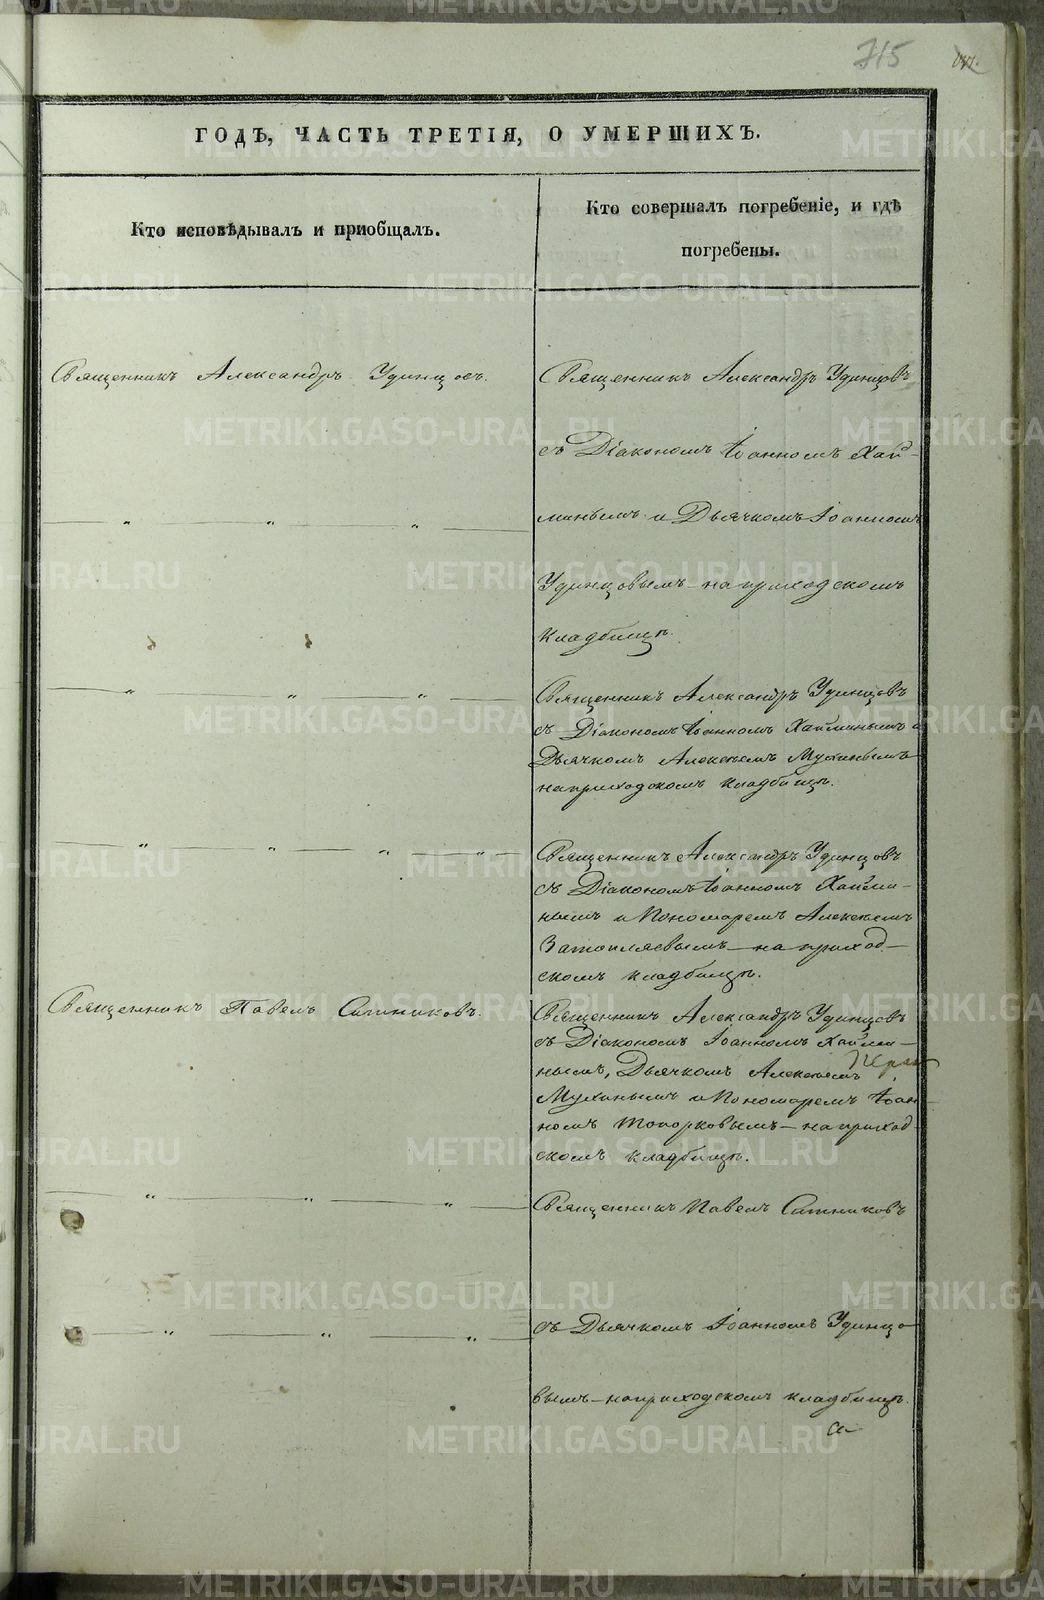 715
ГОДЪ, ЧАСТЬ ТРЕТІЯ, О УМЕРШИХЪ.
Кто исповѣдывалъ и пріобщалъ.
Кто совершалъ погребеніе, и гдѣ
погребены.
Священникъ Александръ Удинцовъ.
Священникъ Александръ Удинцовъ
съ Діакономъ Іоанномъ Хай-
минымъ и Дьячкомъ Іоанномъ
Удинцовымъ – на приходскомъ
кладбищѣ.
Священникъ Александръ Удинцовъ
съ Діакономъ Іоанномъ Хайминымъ и
Дьячкомъ Алексѣемъ Мухинымъ
на приходскомъ кладбищѣ.
Священникъ Александръ Удинцовъ
съ Діакономъ Іоанномъ Хайми-
нымъ и Пономаремъ Алексѣемъ
Затопляевымъ – на приход-
скомъ кладбищѣ.
Священникъ Павелъ Ситниковъ.
Священникъ Александръ Удинцовъ
съ Діакономъ Іоанномъ Хайми-
нымъ, Дьячкомъ Алексѣемъ
Мухинымъ и Пономаремъ Іоан-
номъ Топорковымъ – на приход-
скомъ кладбищѣ.
Священникъ Павелъ Ситниковъ
съ Дьячкомъ Іоанномъ Удинцо-
вымъ – на приходскомъ кладбищѣ.
METRIKI.GASO-URAL.RU